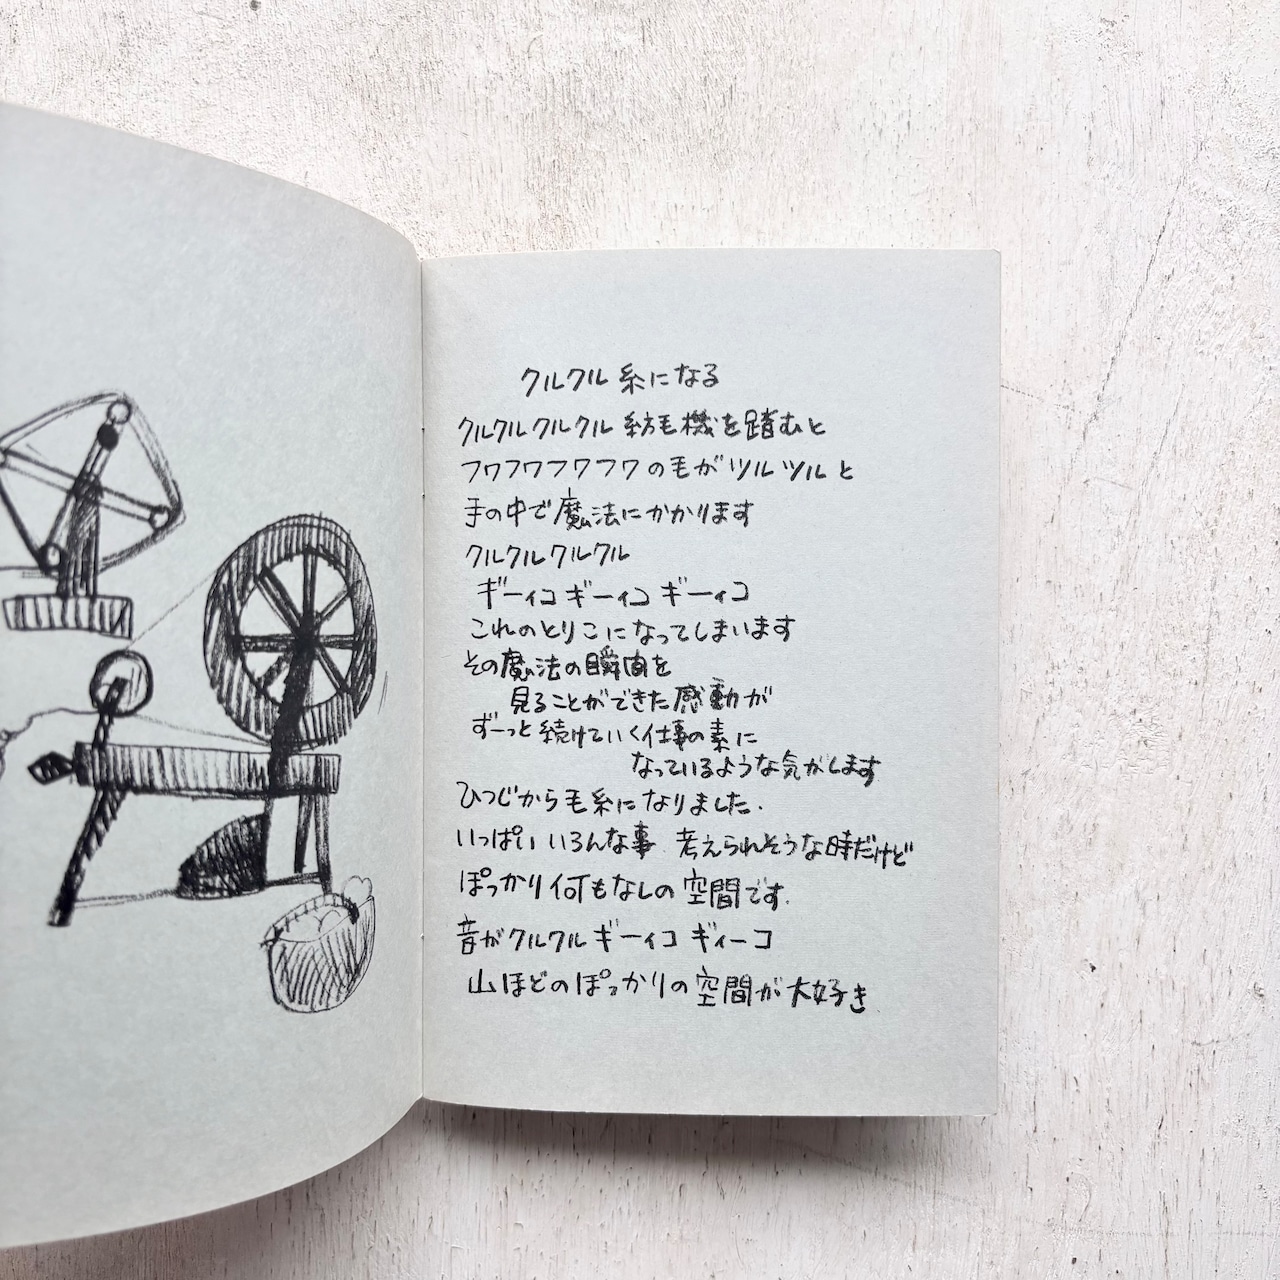 クルクル 糸になる
クルクルクルクル 紡毛機を踏むと
フワフワフワフワの毛がツルツルと
手の中で魔法にかかります
クルクルクルクル
ギーィコ ギーィコ ギーィコ
これのとりこになってしまいます
その魔法の瞬間を
見ることができた感動が
ずーっと続けていく仕事の素に
なっているような気がします
ひつじから毛糸になりました.
いっぱい いろんな事 考えられそうな時だけど
ぽっかり何もなしの空間です.
音がクルクル ギーィコ ギィーコ
山ほどのぽっかりの空間が大好き